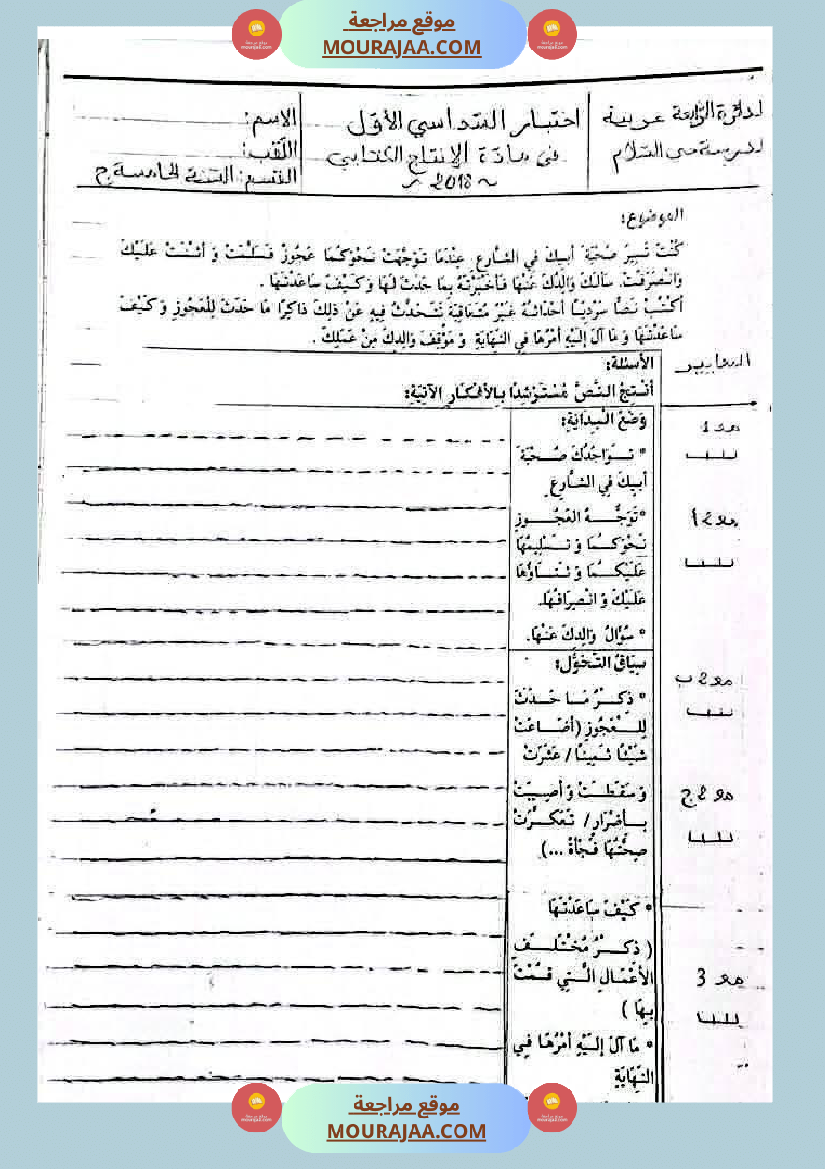 موقع مراجعة
MOURAJAA.COM
اختبار السداسي الأول
في مادة الإنتاج الكتابي
~ 2018 ~
الاسم:
اللقب:
القسم: السنة الخامسة ج
الموضوع:
كُنْتَ تَسِيرُ صُحْبَةَ أَبِيكَ فِي الشَّارِعِ عِنْدَمَا تَوَجَّهَتْ نَحْوَكُمَا عَجُوزٌ فَسَلَّمَتْ وَ أَثْنَتْ عَلَيْكَ
وَانْصَرَفَتْ. سَأَلَكَ وَالِدُكَ عَنْهَا فَأَخْبَرْتَهُ بِمَا حَدَثَ لَهَا وَ كَيْفَ سَاعَدْتَهَا .
أُكْتُبْ نَصًّا سَرْدِيًّا أَحْدَاثُهُ غَيْرُ مُتَعَاقِبَةٍ تَتَحَدَّثُ فِيهِ عَنْ ذَلِكَ ذَاكِرًا مَا حَدَثَ لِلْعَجُوزِ وَ كَيْفَ
سَاعَدْتَهَا وَ مَا آلَ إِلَيْهِ أَمْرُهَا فِي النِّهَايَةِ وَ مَوْقِفَ وَالِدِكَ مِنْ عَمَلِكَ .
المعايير
الأسئلة:
أُنْتِجُ النَّصَّ مُسْتَرْشِدًا بِالأَفْكَارِ الآتِيَةِ:
وَضْعُ الْبِدَايَةِ:
مع 1
* تَوَاجُدُكَ صُحْبَةَ
أَبِيكَ فِي الشَّارِعِ
* تَوَجُّهُ الْعَجُوزِ
نَحْوَكُمَا وَ تَسْلِيمُهَا
عَلَيْكُمَا وَ ثَنَاؤُهَا
عَلَيْكَ وَ انْصِرَافُهَا.
* سُؤَالُ وَالِدِكَ عَنْهَا.
سِيَاقُ التَّحَوُّلِ:
مع 2 ب
* ذِكْرُ مَا حَدَثَ
لِلْعَجُوزِ (أَضَاعَتْ
شَيْئًا ثَمِينًا / عَثَرَتْ
وَ سَقَطَتْ وَ أُصِيبَتْ
مع 2 ج
بِأَضْرَارٍ / تَعَكَّرَتْ
صِحَّتُهَا فَجْأَةً ...)
* كَيْفَ سَاعَدْتَهَا
( ذِكْرُ مُخْتَلِفِ
الأَعْمَالِ الَّتِي قُمْتَ
مع 3
بِهَا )
* مَا آلَ إِلَيْهِ أَمْرُهَا فِي
النِّهَايَةِ
موقع مراجعة
MOURAJAA.COM